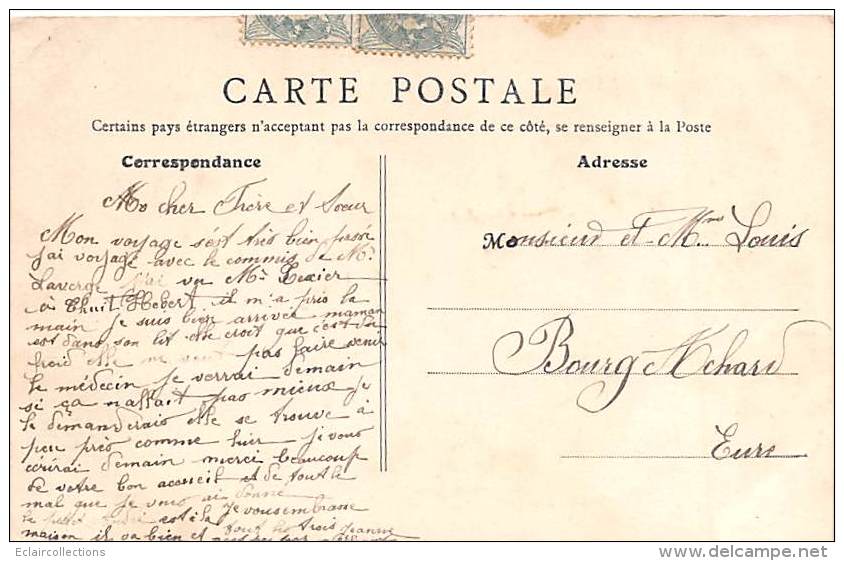 CARTE POSTALE
Certains pays étrangers n'acceptent pas la correspondance de ce côté, se renseigner à la Poste
Correspondance
Adresse
Mo cher Frère et Soeur
Mon voyage s'est très bien passé
j'ai voyagé avec le commis de Mr
Laverge j'ai vu Mr Texier
à Thuit Hebert il m'a pris la
main je suis bien arrivée maman
est dans son lit elle croit que c'est du
froid elle ne veut pas faire venir
le médecin je verrai demain
si ça n'allait pas mieux je
le demanderais elle se trouve à
peu près comme hier je vous
écrirai demain merci beaucoup
de votre bon accueil et de tout le
mal que je vous ai donné
le petit André est à la je vous embrasse
maison il va bien et tout les trois Jeanne
Monsieur et Mme Louis
Bourg Achard
Eure
Eclaircollections
©delcampe.net